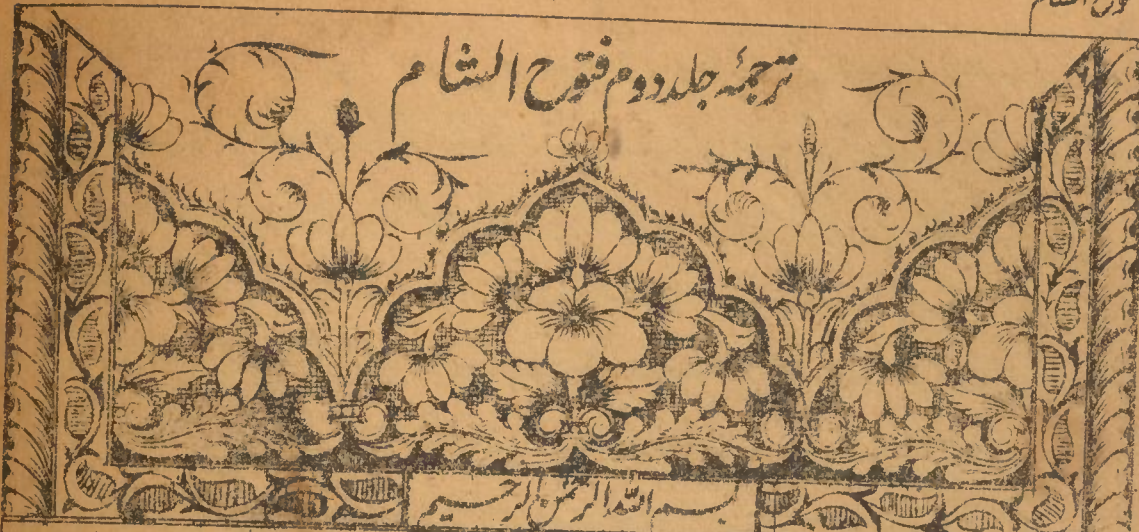 ترجمۂ جلد دوم فتوح الشام
بسم اللہ الرحمن الرحیم